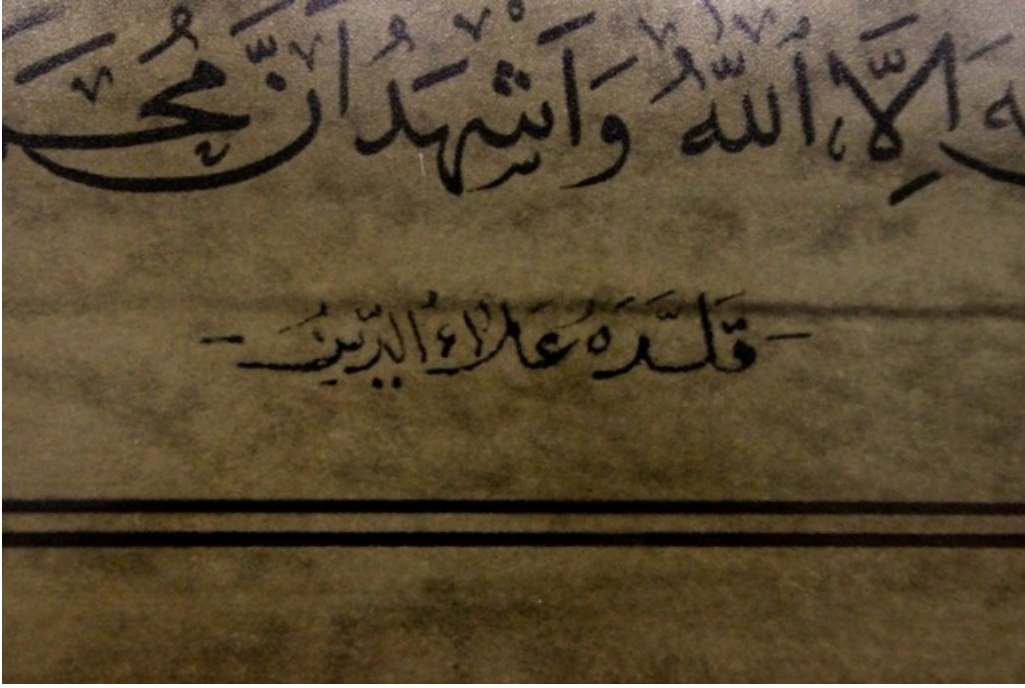 ه اِلَّا ٱللّٰهُ وَاَشْهَدُ اَنَّ مُحَمَ
- قَلَّدَهُ عَلَاءُ الدِّينِ -